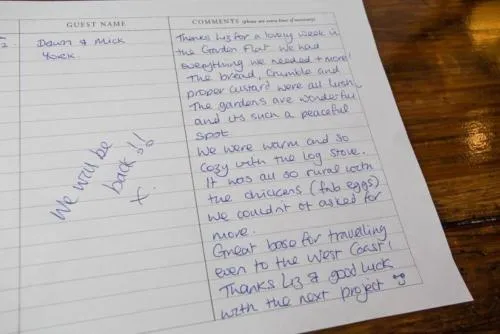 GUEST NAME
COMMENTS (please use extra lines if necessary)
2
Dawn & Mick
York.
We will be
back!!
x.
Thanks Liz for a lovely week in
the Garden Flat. We had
everything we needed + more!
The bread, crumble and
proper custard were all lush.
The gardens are wonderful
and its such a peaceful
spot.
We were warm and so
cozy with the log stove.
It was all so rural with
the chickens (fab eggs)
We couldn't of asked for
more.
Great base for travelling
even to the West Coast!
Thanks Liz & good luck
with the next project